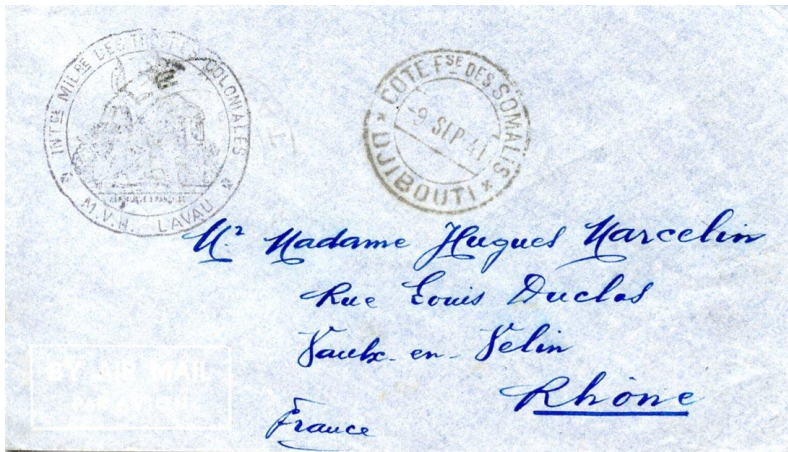 INTCE MILRE DES TROUPES COLONIALES
M.V.H. LAVAU
COTE FSE DES SOMALIS
-9 SEP 41
DJIBOUTI
Mr Madame Hugues Marcelin
Rue Louis Duclos
Vaulx-en-Velin
Rhône
France
BY AIR MAIL